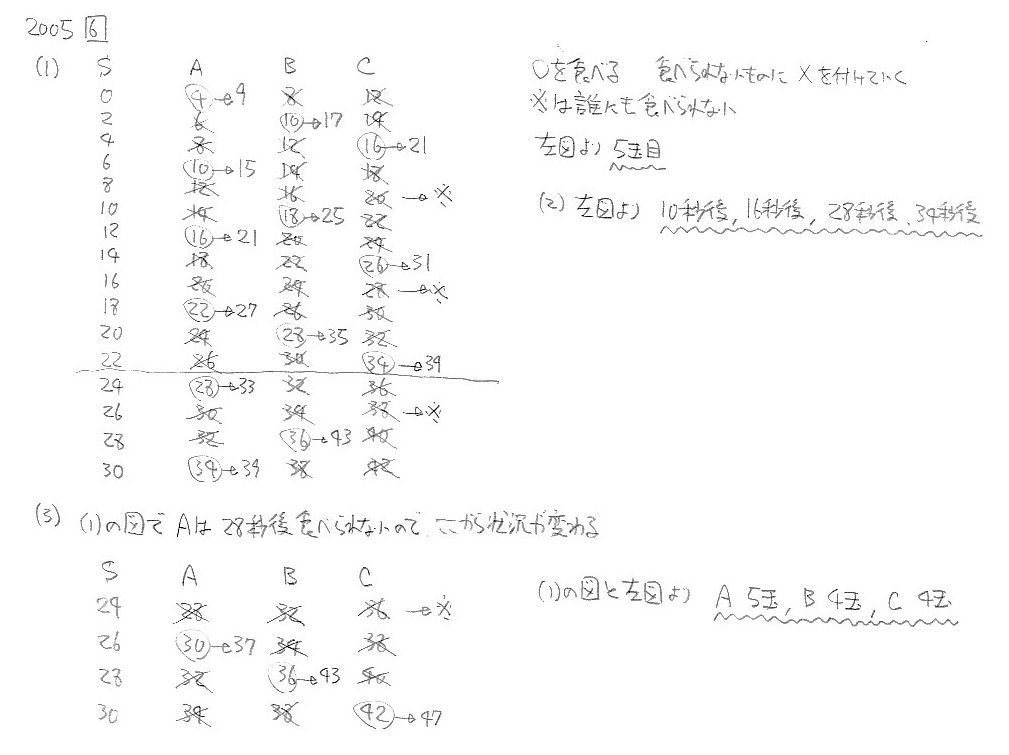 2005 6
(1) S A B C
0 4→9 8 12
2 6 10→17 14
4 8 12 16→21
6 10→15 14 18
8 12 16 20→※
10 14 18→25 22
12 16→21 20 24
14 18 22 26→31
16 20 24 28→※
18 22→27 26 30
20 24 28→35 32
22 26 30 34→39
24 28→33 32 36
26 30 34 38→※
28 32 36→43 40
30 34→39 38 42
○を食べる 食べられないものに×を付けていく
※は誰にも食べられない
左図より 5玉目
(2) 左図より 10秒後, 16秒後, 28秒後, 34秒後
(3) (1)の図で Aは 28秒後食べられないので、ここから状況が変わる
S A B C
24 28 32 36→※
26 30→37 34 38
28 32 36→43 40
30 34 38 42→47
(1)の図と左図より A 5玉, B 4玉, C 4玉